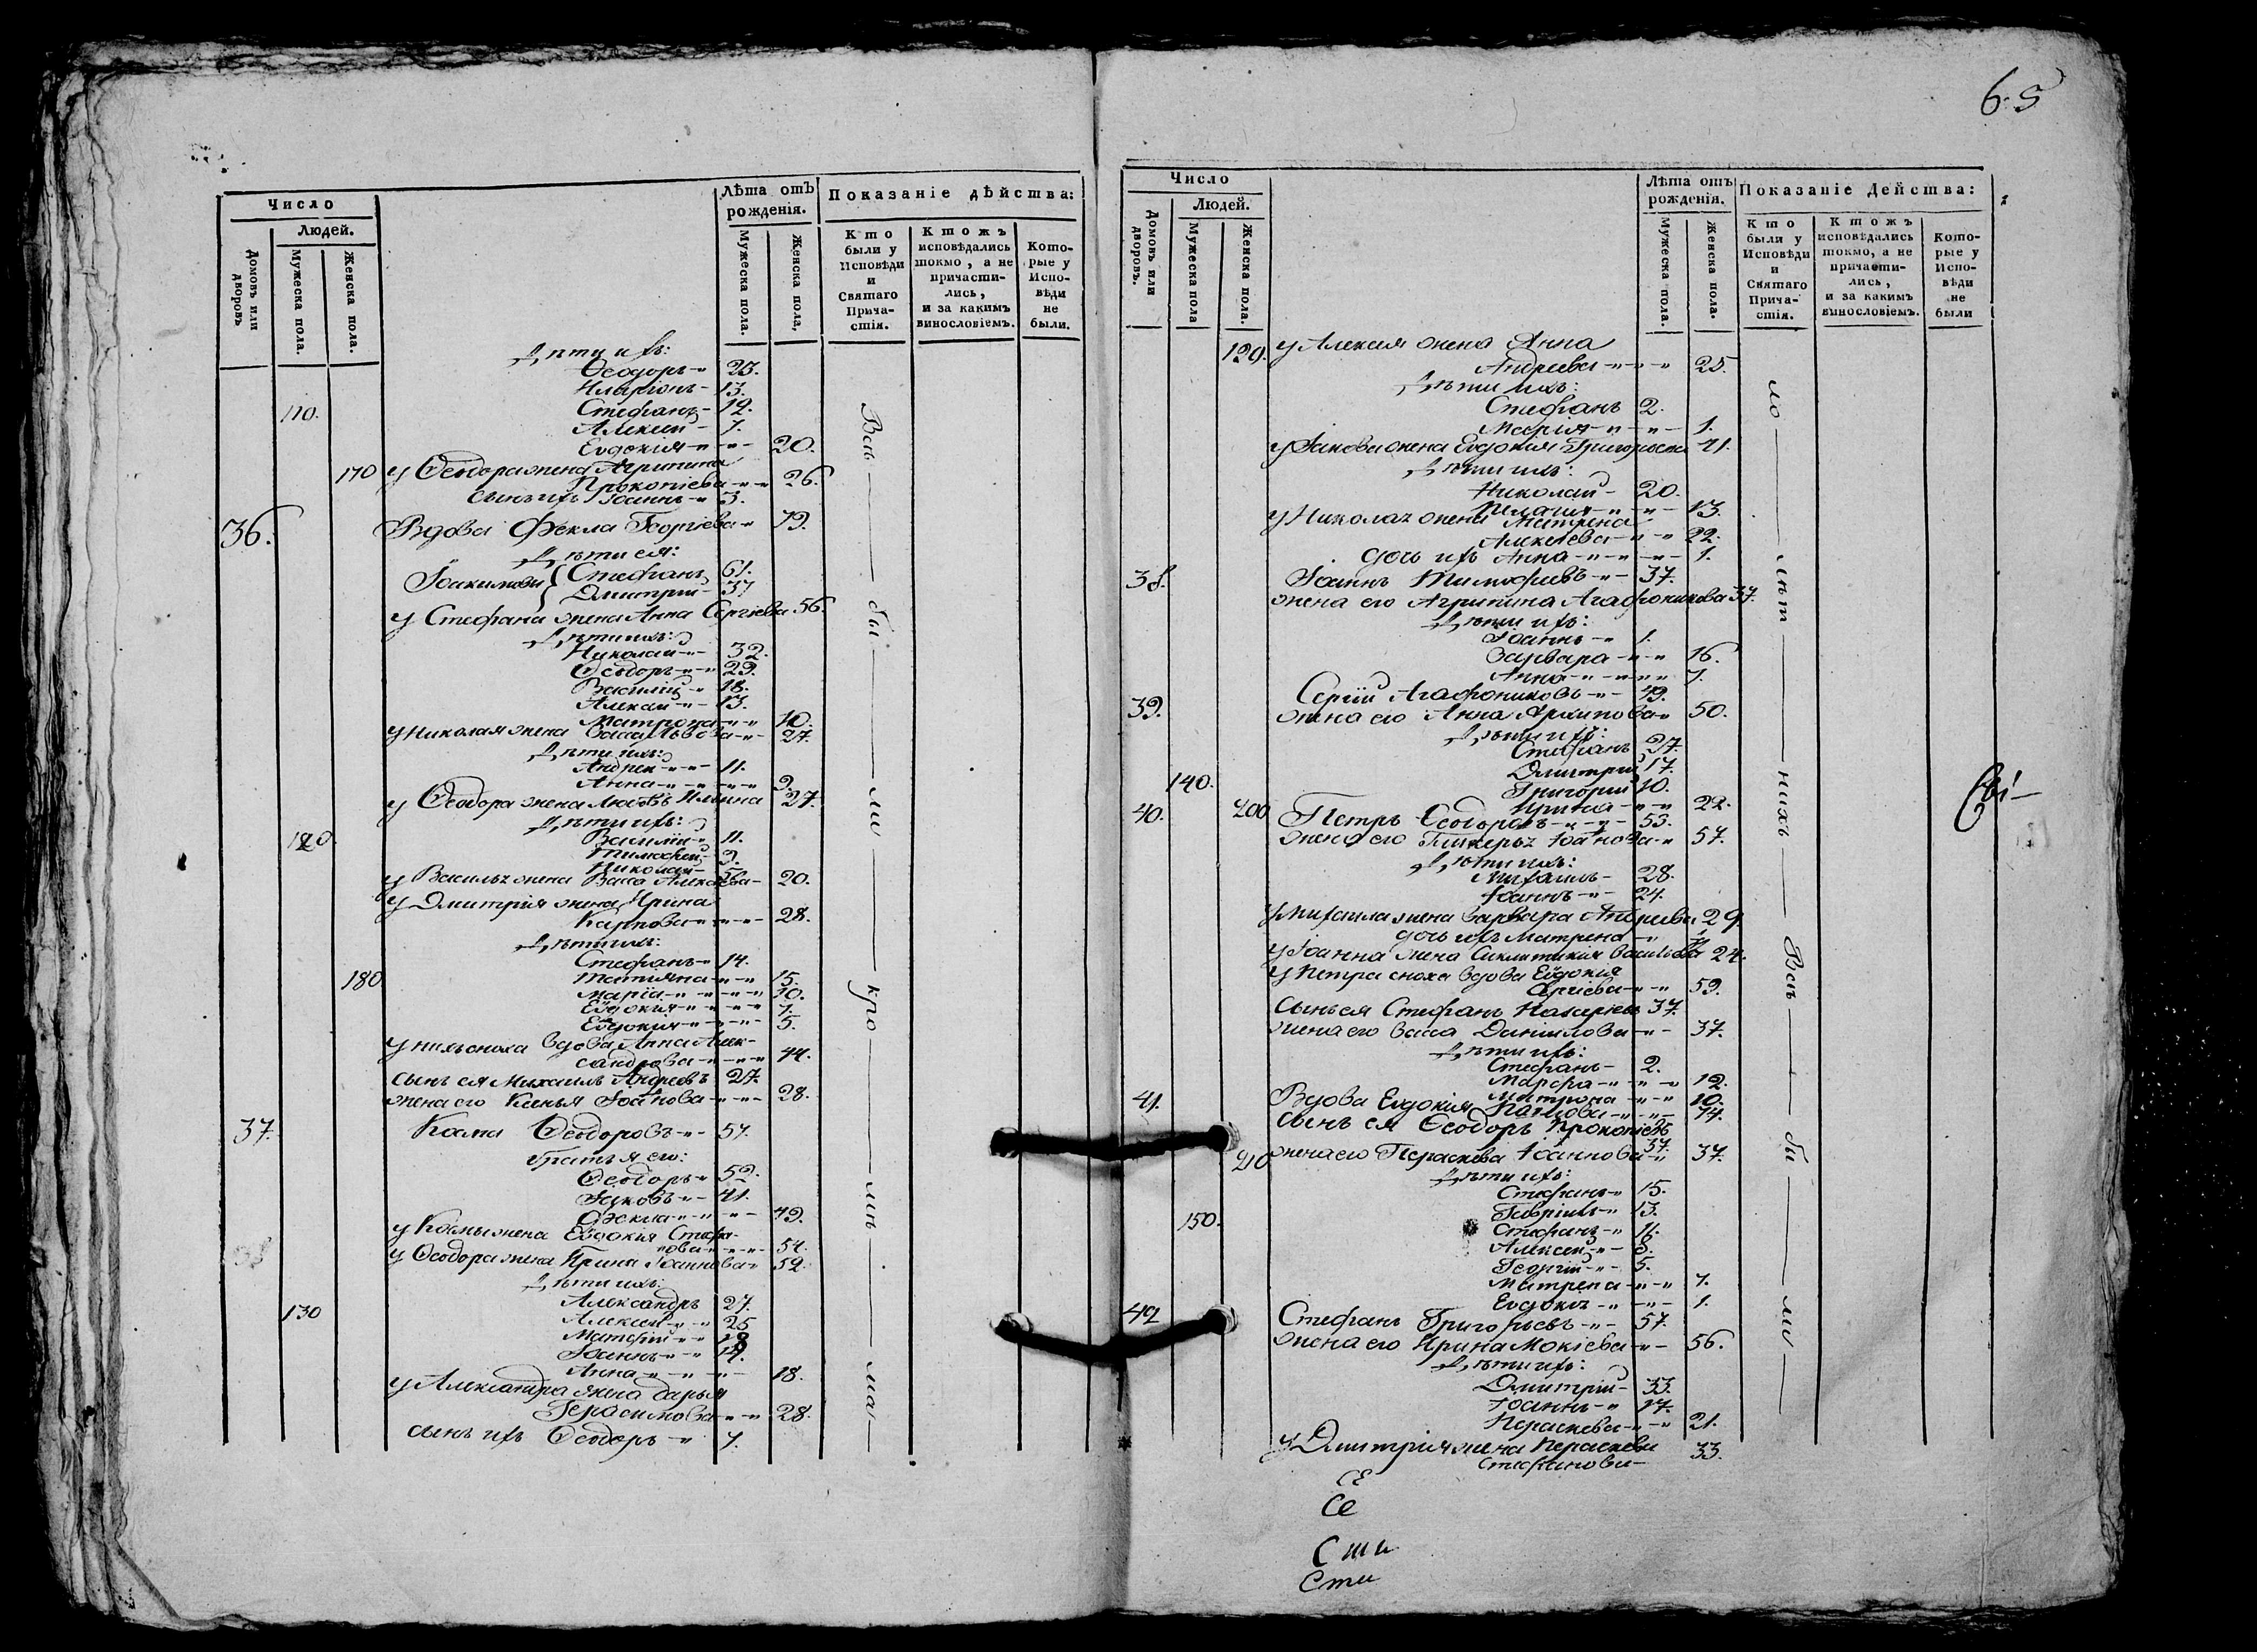 65
Число
Людей.
Домовъ или дворовъ
Мужеска пола.
Женска пола.
Лѣта отъ рожденія.
Мужеска пола.
Женска пола,
Показаніе дѣйства:
Кто были у Исповѣди и Святаго Прича-стія.
Ктожъ исповѣдались токмо, а не причасти-лись, и за какимъ винословіемъ.
Кото-рые у Испо-вѣди не были.
Дѣти ихъ:
Ѳеодоръ 25.
Иларіонъ 13.
110. Стефанъ 12.
Алексей 7.
Евдокія 20.
170 у Ѳеодора жена Агрипина
Прокопіева 26.
сынъ ихъ Іоаннъ 3.
36. Вдова Фекла Георгіева 79.
Дѣти ея:
Іоакимови Стефанъ 61.
Дмитрій 37
у Стефана жена Анна Сергіева 56.
Дѣти ихъ:
Николай 32.
Ѳеодоръ 29.
Василій 18.
Алексей 13.
Матрона 10.
у Николая жена Васса Львова 27.
Дѣти ихъ:
Андрей 11.
Анна 9.
у Ѳеодора жена Любовь Ильина 27.
Дѣти ихъ:
120. Василій 11.
Тимофей 9.
Николай
у Василья жена Васса Алексеева 20.
у Дмитрія жена Ирина
Карпова 28.
Дѣти ихъ:
Стефанъ 14.
180 Татіяна 15.
Маріа 10.
Евдокія 7.
Евдокія 5.
у нихъ сноха вдова Анна Алек-
сандрова 44.
сынъ ея Михаилъ Андреевъ 27.
жена его Ксенья Іоаннова 28.
37. Косма Ѳеодоровъ 57.
братья его:
Ѳеодоръ 52.
Іаковъ 41.
Фекла 49.
у Космы жена Евдокія Стефа-
нова 54.
у Ѳеодора жена Ирина Іоаннова 52.
Дѣти ихъ:
130 Александръ 27.
Алексей 25
Матфей
Іоаннъ
Анна 18.
у Александра жена Дарья
Герасимова 28.
сынъ ихъ Ѳеодоръ 7.
Всѣ — бы — ли — кро — мѣ — ма
Число
Людей.
Домовъ или дворовъ.
Мужеска пола
Женска пола.
Лѣта отъ рожденія.
Мужеска пола.
Женска пола.
Показаніе Действа:
Кто были у Исповѣди и Святаго Прича-стія.
Ктожъ исповѣдались токмо, а не причасти-лись, и за какимъ винословіемъ.
Кото-рые у Испо-вѣди не были
у Алексея жена Анна
Андреева 25.
Дѣти ихъ:
Стефанъ 2.
Марія 1.
у Іакова жена Евдокія Григорьева 41.
Дѣти ихъ:
Николай 20.
Пелагія 13.
у Николая жена Матрена
Алексеева 22.
дочь ихъ Анна 1.
38. Іоаннъ Тимофеевъ 37.
жена его Агрипина Агафоникова 37.
Дѣти ихъ:
Іоаннъ 1.
Варвара 16.
Анна 7.
39. Сергій Агафониковъ 49.
жена его Анна Архипова 50.
Дѣти ихъ:
Стефанъ 27.
Дмитрій 17.
140. Григорій 10.
200 Ирина 22.
40. Петръ Ѳеодоровъ 53.
жена его Гликерья Іоаннова 57.
Дѣти ихъ:
Михаилъ 28.
Іоаннъ 24.
у Михаила жена Варвара Андреева 29.
дочь ихъ Матрена
у Іоанна жена Сиклитикия Васильева 24.
у Петра сноха вдова Евдокія
Сергіева 59.
Сынъ ея Стефанъ Назарьевъ 37.
жена его Васса Даніилова 37.
Дѣти ихъ:
Стефанъ 2.
Марфа 12.
Матрона 10.
41. Вдова Евдокія 74.
сынъ ея Ѳеодоръ Прокопіевъ 37.
210 жена его Параскева Іоаннова 37.
Дѣти ихъ:
Стефанъ 15.
Гавріилъ 13.
150. Стефанъ 11.
Алексей 8.
Георгій 5.
Матрена 7.
Евдокія 1.
42 Стефанъ Григорьевъ 57.
жена его Ирина Мокіева 56.
Дѣти ихъ:
Дмитрій 33.
Іоаннъ 17.
Параскева 21.
у Дмитрія жена Параскева
Стефанова 33.
ло — лѣт — нихъ — Всѣ — бы — ли
Се
Се
Сти
Сти